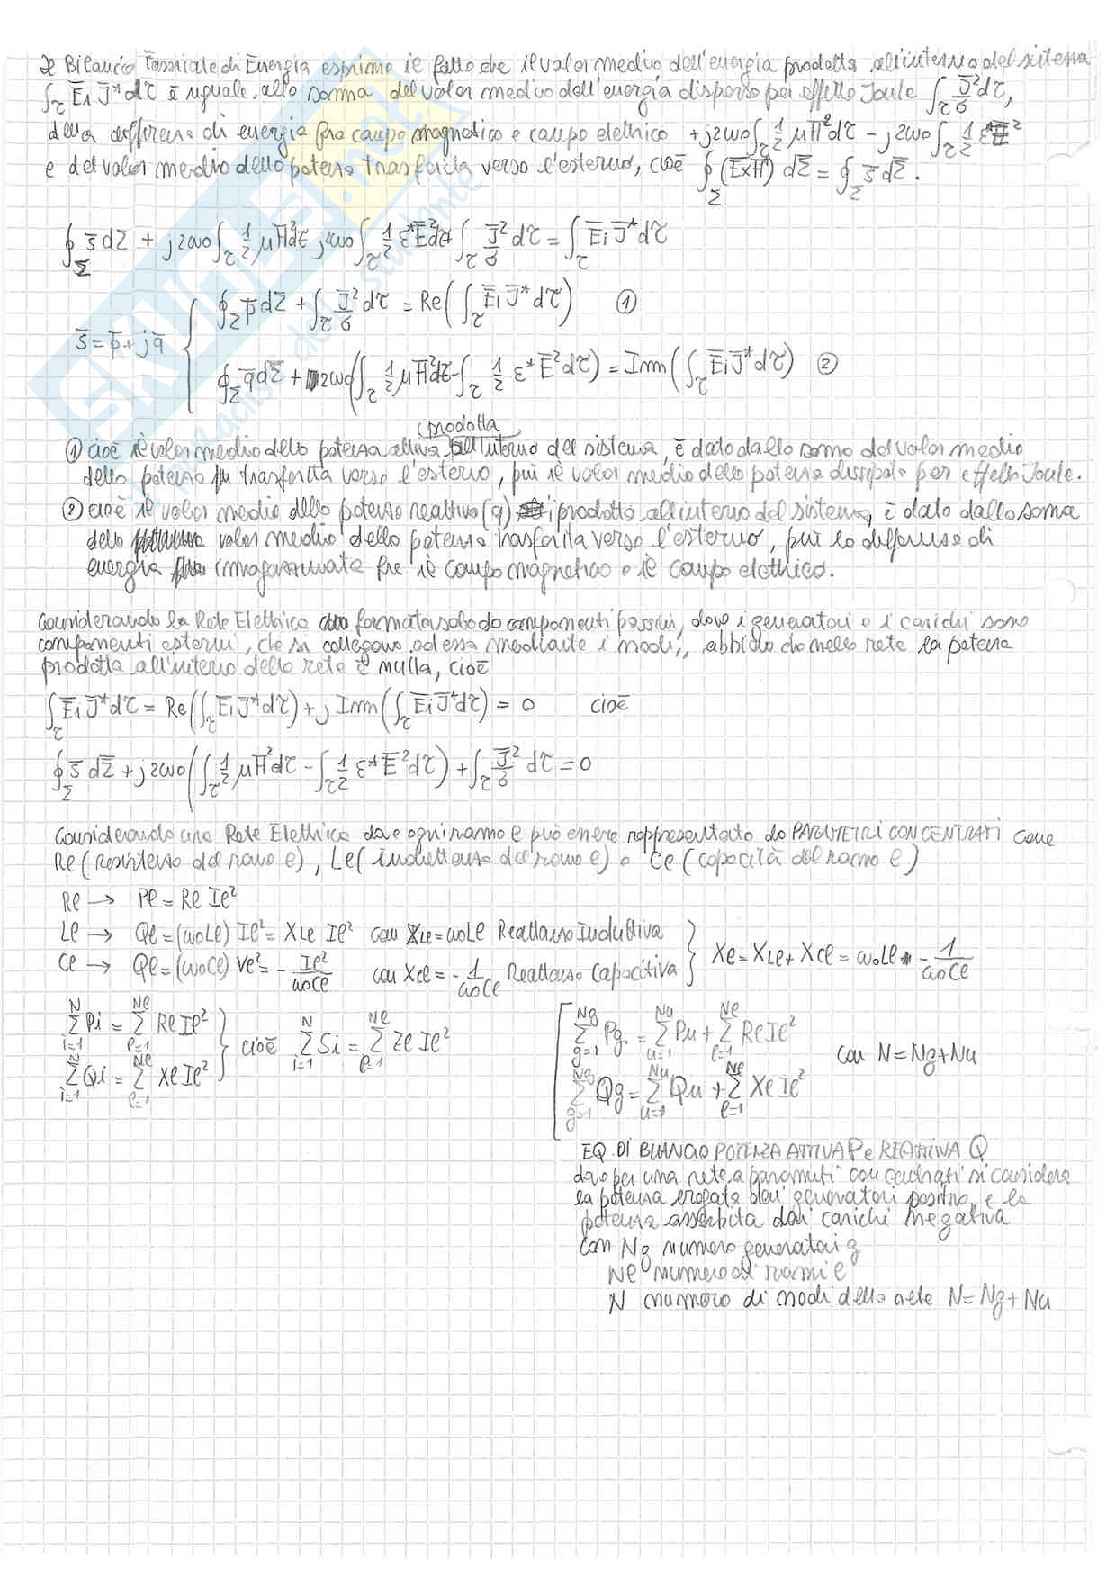 Il Bilancio Fasoriale di Energia esprime il fatto che il valor medio dell'energia prodotta all'interno del sistema
∫τ Ēi J̄* dτ è uguale alla somma del valor medio dell'energia dispersa per effetto Joule ∫τ J̄²/σ dτ,
della differenza di energia fra campo magnetico e campo elettrico +j2ω₀∫τ ½ μH̄² dτ - j2ω₀∫τ ½ ε*Ē²
e del valor medio della potenza trasferita verso l'esterno, cioè ∮Σ (Ē×H̄*) dΣ̄ = ∮Σ s̄ dΣ̄.
∮Σ s̄ dΣ̄ + j2ω₀∫τ ½ μH̄² dτ - j2ω₀∫τ ½ ε*Ē² dτ + ∫τ J̄²/σ dτ = ∫τ Ēi J̄* dτ
s̄ = p̄ + jq̄ { ∮Σ p̄ dΣ̄ + ∫τ J̄²/σ dτ = Re(∫τ Ēi J̄* dτ) ①
∮Σ q̄ dΣ̄ + 2ω₀(∫τ ½ μH̄² dτ - ∫τ ½ ε*Ē² dτ) = Imm(∫τ Ēi J̄* dτ) ②
prodotta
① cioè il valor medio della potenza attiva all'interno del sistema, è dato dalla somma del valor medio
della potenza trasferita verso l'esterno, più il valor medio della potenza dissipata per effetto Joule.
② cioè il valor medio della potenza reattiva (q) prodotta all'interno del sistema, è dato dalla somma
della valor medio della potenza trasferita verso l'esterno, più la differenza di
energia immagazzinata fra il campo magnetico e il campo elettrico.
Considerando la Rete Elettrica formata solo da componenti passivi, dove i generatori e i carichi sono
componenti esterni, che si collegano ad essa mediante i nodi, abbiamo che nella rete la potenza
prodotta all'interno della rete è nulla, cioè
∫τ Ēi J̄* dτ = Re(∫τ Ēi J̄* dτ) + j Imm(∫τ Ēi J̄* dτ) = 0 cioè
∮Σ s̄ dΣ̄ + j2ω₀(∫τ ½ μH̄² dτ - ∫τ ½ ε*Ē² dτ) + ∫τ J̄²/σ dτ = 0
Considerando una Rete Elettrica dove ogni ramo l può essere rappresentato da PARAMETRI CONCENTRATI come
Rl (resistenza del ramo l), Ll (induttanza del ramo l) e Cl (capacità del ramo l)
Rl → Pl = Rl Il²
Ll → Ql = (ω₀Ll) Il² = XLl Il² con XLl = ω₀Ll Reattanza Induttiva
Cl → Ql = (ω₀Cl) Vl² = - Il²/ω₀Cl con XCl = - 1/ω₀Cl Reattanza Capacitiva } Xl = XLl + XCl = ω₀Ll - 1/ω₀Cl
∑i=1^N Pi = ∑l=1^Nl Rl Il²
∑i=1^N Qi = ∑l=1^Nl Xl Il² } cioè ∑i=1^N Si = ∑l=1^Nl Zl Il²
[ ∑g=1^Ng Pg = ∑u=1^Nu Pu + ∑l=1^Nl Rl Il²
∑g=1^Ng Qg = ∑u=1^Nu Qu + ∑l=1^Nl Xl Il² con N = Ng + Nu
EQ. DI BILANCIO POTENZA ATTIVA P e REATTIVA Q
dove per una rete a parametri concentrati si considera
la potenza erogata dai generatori positiva, e la
potenza assorbita dai carichi negativa
con Ng numero generatori g
Nl numero di rami l
N numero di nodi della rete N = Ng + Nu